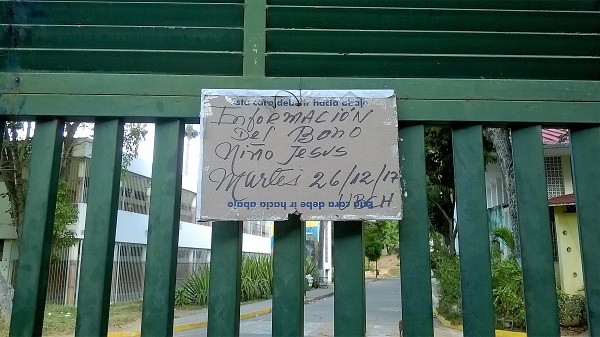 esta cara debe ir hacia abajo
InFoRMACIÓN
Del Bono
Niño Jesus
Martes 26/12/17
1B-H
esta cara debe ir hacia abajo